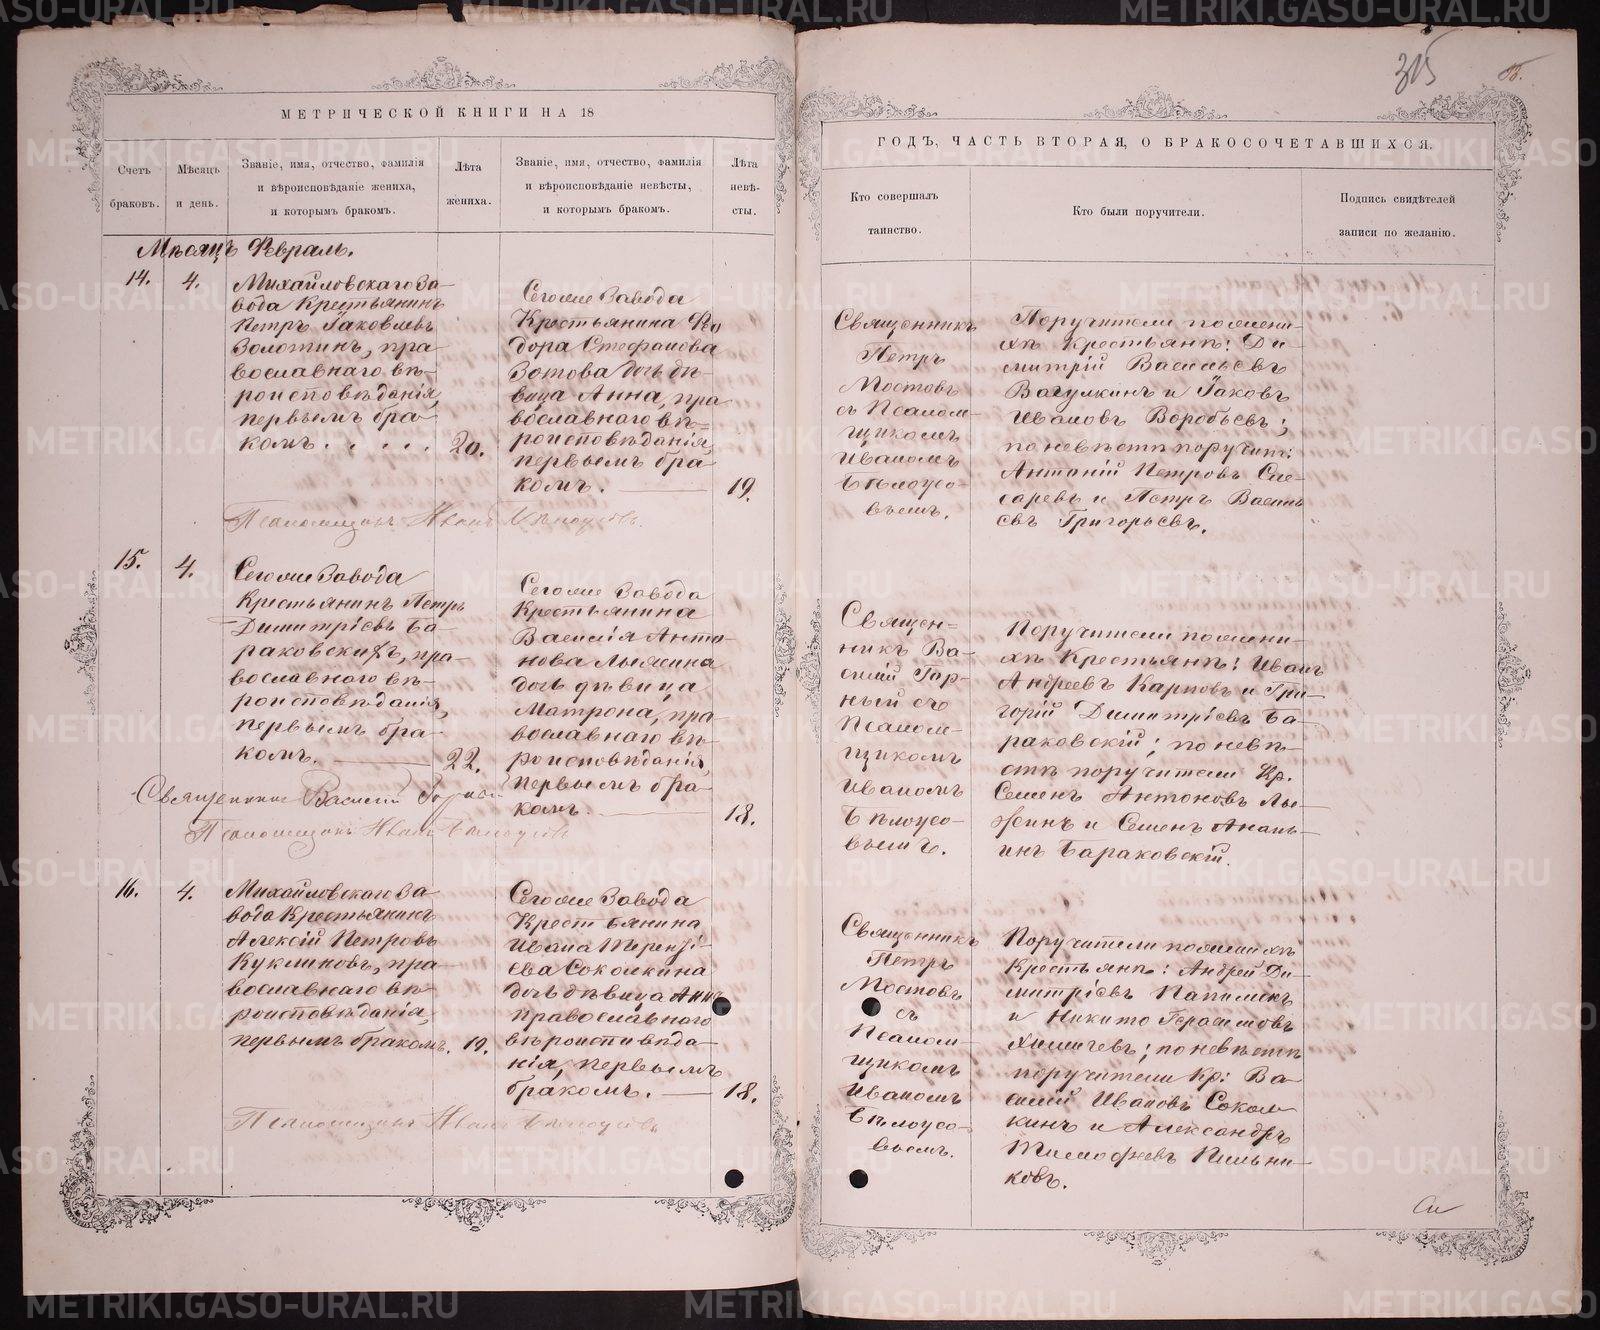 МЕТРИЧЕСКОЙ КНИГИ НА 18
Счетъ браковъ.
Мѣсяцъ и день.
Званіе, имя, отчество, фамилія
и вѣроисповѣданіе жениха,
и которымъ бракомъ.
Лѣта жениха.
Званіе, имя, отчество, фамилія
и вѣроисповѣданіе невѣсты,
и которымъ бракомъ.
Лѣта невѣ-
сты.
Мѣсяцъ Февраль.
14.
4.
Михайловскаго За-
вода Крестьянинъ
Петръ Іаковлевъ
Золотинъ, пра-
вославнаго вѣ-
роисповѣданія,
первымъ бра-
комъ. . . . . .
20.
Сегоже Завода
Крестьянина Фео
дора Стефанова
Зотова дочь дѣ-
вица Анна, пра
вославнаго вѣ-
роисповѣданія,
первымъ бра-
комъ.
19.
Псаломщикъ Иванъ Бѣлоусовъ.
15.
4.
Сегоже Завода
Крестьянинъ Петръ
Димитріевъ Ба-
раковскихъ, пра-
вославнаго вѣ-
роисповѣданія,
первымъ бра-
комъ.
22.
Сегоже Завода
Крестьянина
Василія Анто-
нова Лыжина
дочь дѣвица
Матрона, пра-
вославнаго вѣ-
роисповѣданія,
первымъ бра-
комъ.
18.
Священникъ Василій Горный
Псаломщикъ Иванъ Бѣлоусовъ
16.
4.
Михайловскаго За-
вода Крестьянинъ
Алексій Петровъ
Куклиновъ, пра-
вославнаго вѣ-
роисповѣданія,
первымъ бракомъ.
19.
Сегоже Завода
Крестьянина
Ивана Теренті-
ева Соколкина
дочь дѣвица Анна
православнаго
вѣроисповѣда-
нія, первымъ
бракомъ.
18.
Псаломщикъ Иванъ Бѣлоусовъ
315
ГОДЪ, ЧАСТЬ ВТОРАЯ, О БРАКОСОЧЕТАВШИХСЯ.
Кто совершалъ
таинство.
Кто были поручители.
Подпись свидѣтелей
записи по желанію.
Священникъ
Петръ
Мостовъ
съ Псалом-
щикомъ
Иваномъ
Бѣлоусо-
вымъ.
Поручители по жени-
хѣ Крестьяне: Ди-
митрій Васильевъ
Вагулкинъ и Іаковъ
Ивановъ Воробьевъ;
по невѣстѣ поручит:
Антоній Петровъ Сле-
саревъ и Петръ Василь
евъ Григорьевъ.
Священ-
никъ Ва-
силій Гор-
ный съ
Псалом-
щикомъ
Иваномъ
Бѣлоусо-
вымъ.
Поручители по жени-
хѣ Крестьяне: Иванъ
Андреевъ Карповъ и Гри-
горій Димитріевъ Ба-
раковскій; по невѣ-
стѣ поручители Кр.
Семенъ Антоновъ Лы-
жинъ и Семенъ Анань-
инъ Бараковскій.
Священникъ
Петръ
Мостовъ
съ
Псалом-
щикомъ
Иваномъ
Бѣлоусо-
вымъ.
Поручители по женихѣ
Крестьяне: Андрей Ди-
митріевъ
и Никита Герасимовъ
по невѣстѣ
поручители Кр: Ва-
силій Ивановъ Сокол-
кинъ и Александръ
Тимофеевъ Пильни-
ковъ.
METRIKI.GASO-URAL.RU